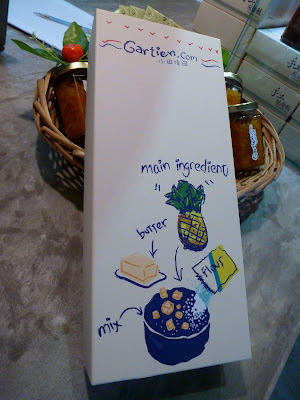 Gartien.com
main ingredient
butter
FLOUR
mix